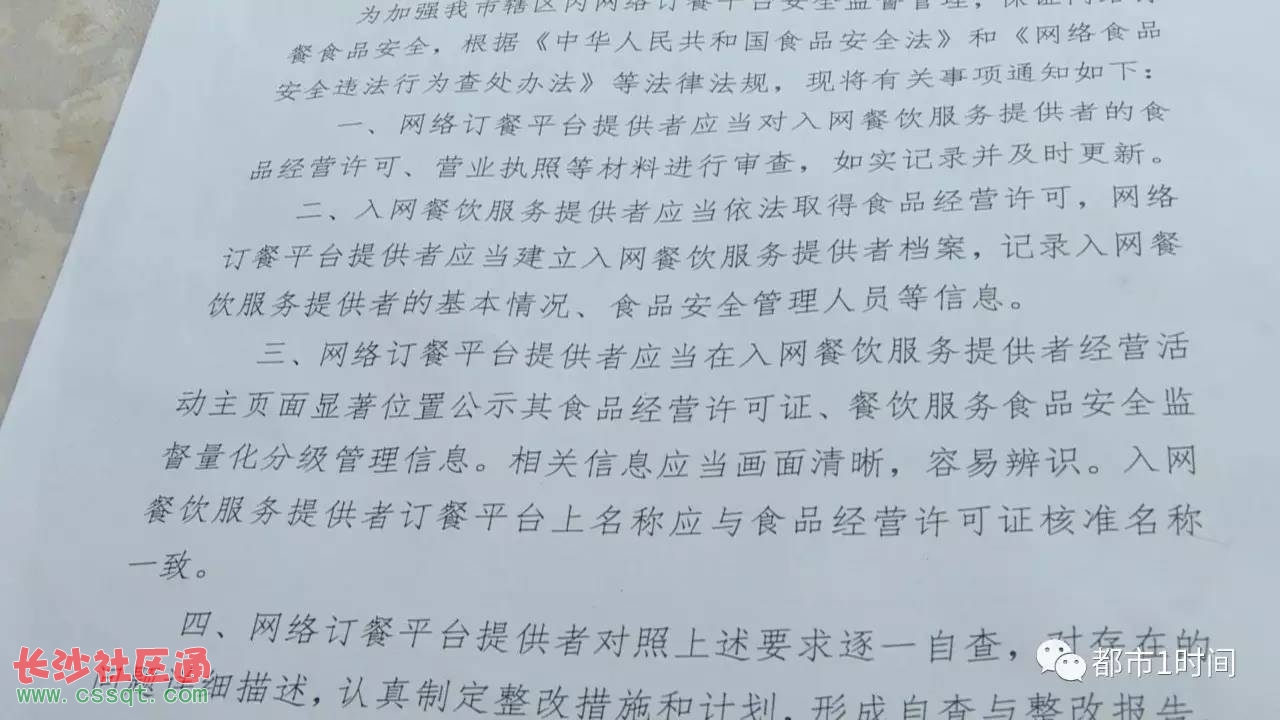 为加强我市辖区内网络订餐平台安全监督管理，保证网络订
餐食品安全，根据《中华人民共和国食品安全法》和《网络食品
安全违法行为查处办法》等法律法规，现将有关事项通知如下：
一、网络订餐平台提供者应当对入网餐饮服务提供者的食
品经营许可、营业执照等材料进行审查，如实记录并及时更新。
二、入网餐饮服务提供者应当依法取得食品经营许可，网络
订餐平台提供者应当建立入网餐饮服务提供者档案，记录入网餐
饮服务提供者的基本情况、食品安全管理人员等信息。
三、网络订餐平台提供者应当在入网餐饮服务提供者经营活
动主页面显著位置公示其食品经营许可证、餐饮服务食品安全监
督量化分级管理信息。相关信息应当画面清晰，容易辨识。入网
餐饮服务提供者订餐平台上名称应与食品经营许可证核准名称
一致。
四、网络订餐平台提供者对照上述要求逐一自查，对存在的
问题详细描述，认真制定整改措施和计划，形成自查与整改报告
长沙社区通
www.cssqt.com
都市1时间